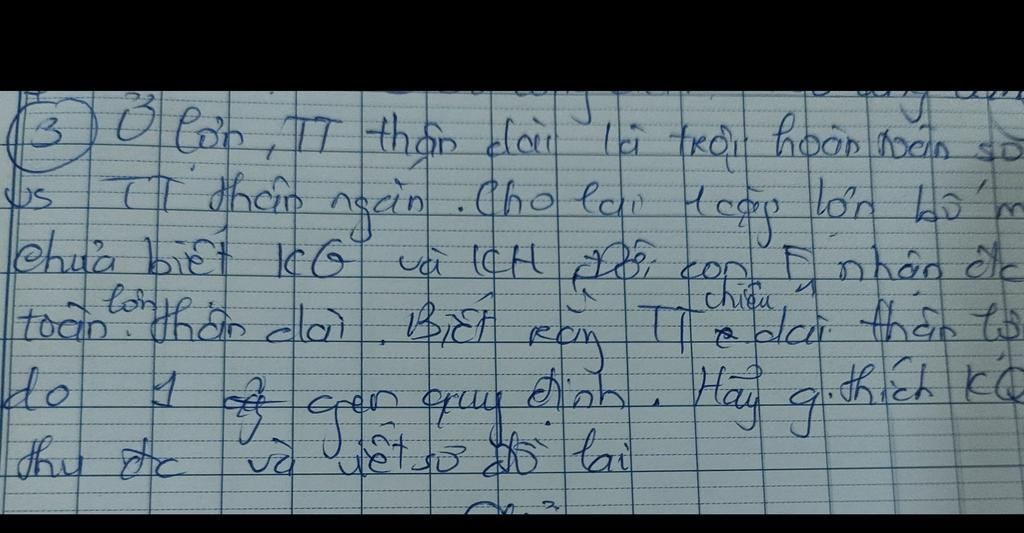 ③ Ở lợn, TT thân dài là trội hoàn toàn so
vs TT thân ngắn. Cho lai 1 cặp lợn bố m
chưa biết KG và KH đời con F1 nhận đc
toàn lợn thân dài. Biết rằng TT chiều dài thân lợ
do 1 gen quy định. Hãy g.thích KQ
thu đc và viết sơ đồ lai